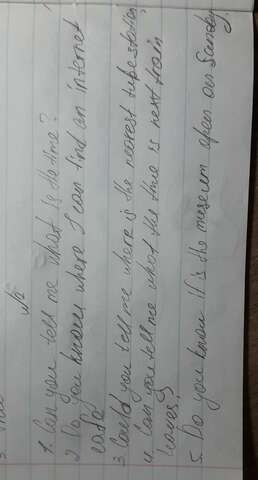 №2
1. Can you tell me what is the time?
2. Do you know where I can find an internet
cafe
3. Could you tell me where is the nearest tube station
4. Can you tell me what the time is next train
leaves?
5. Do you know if is the museum open on Sunday